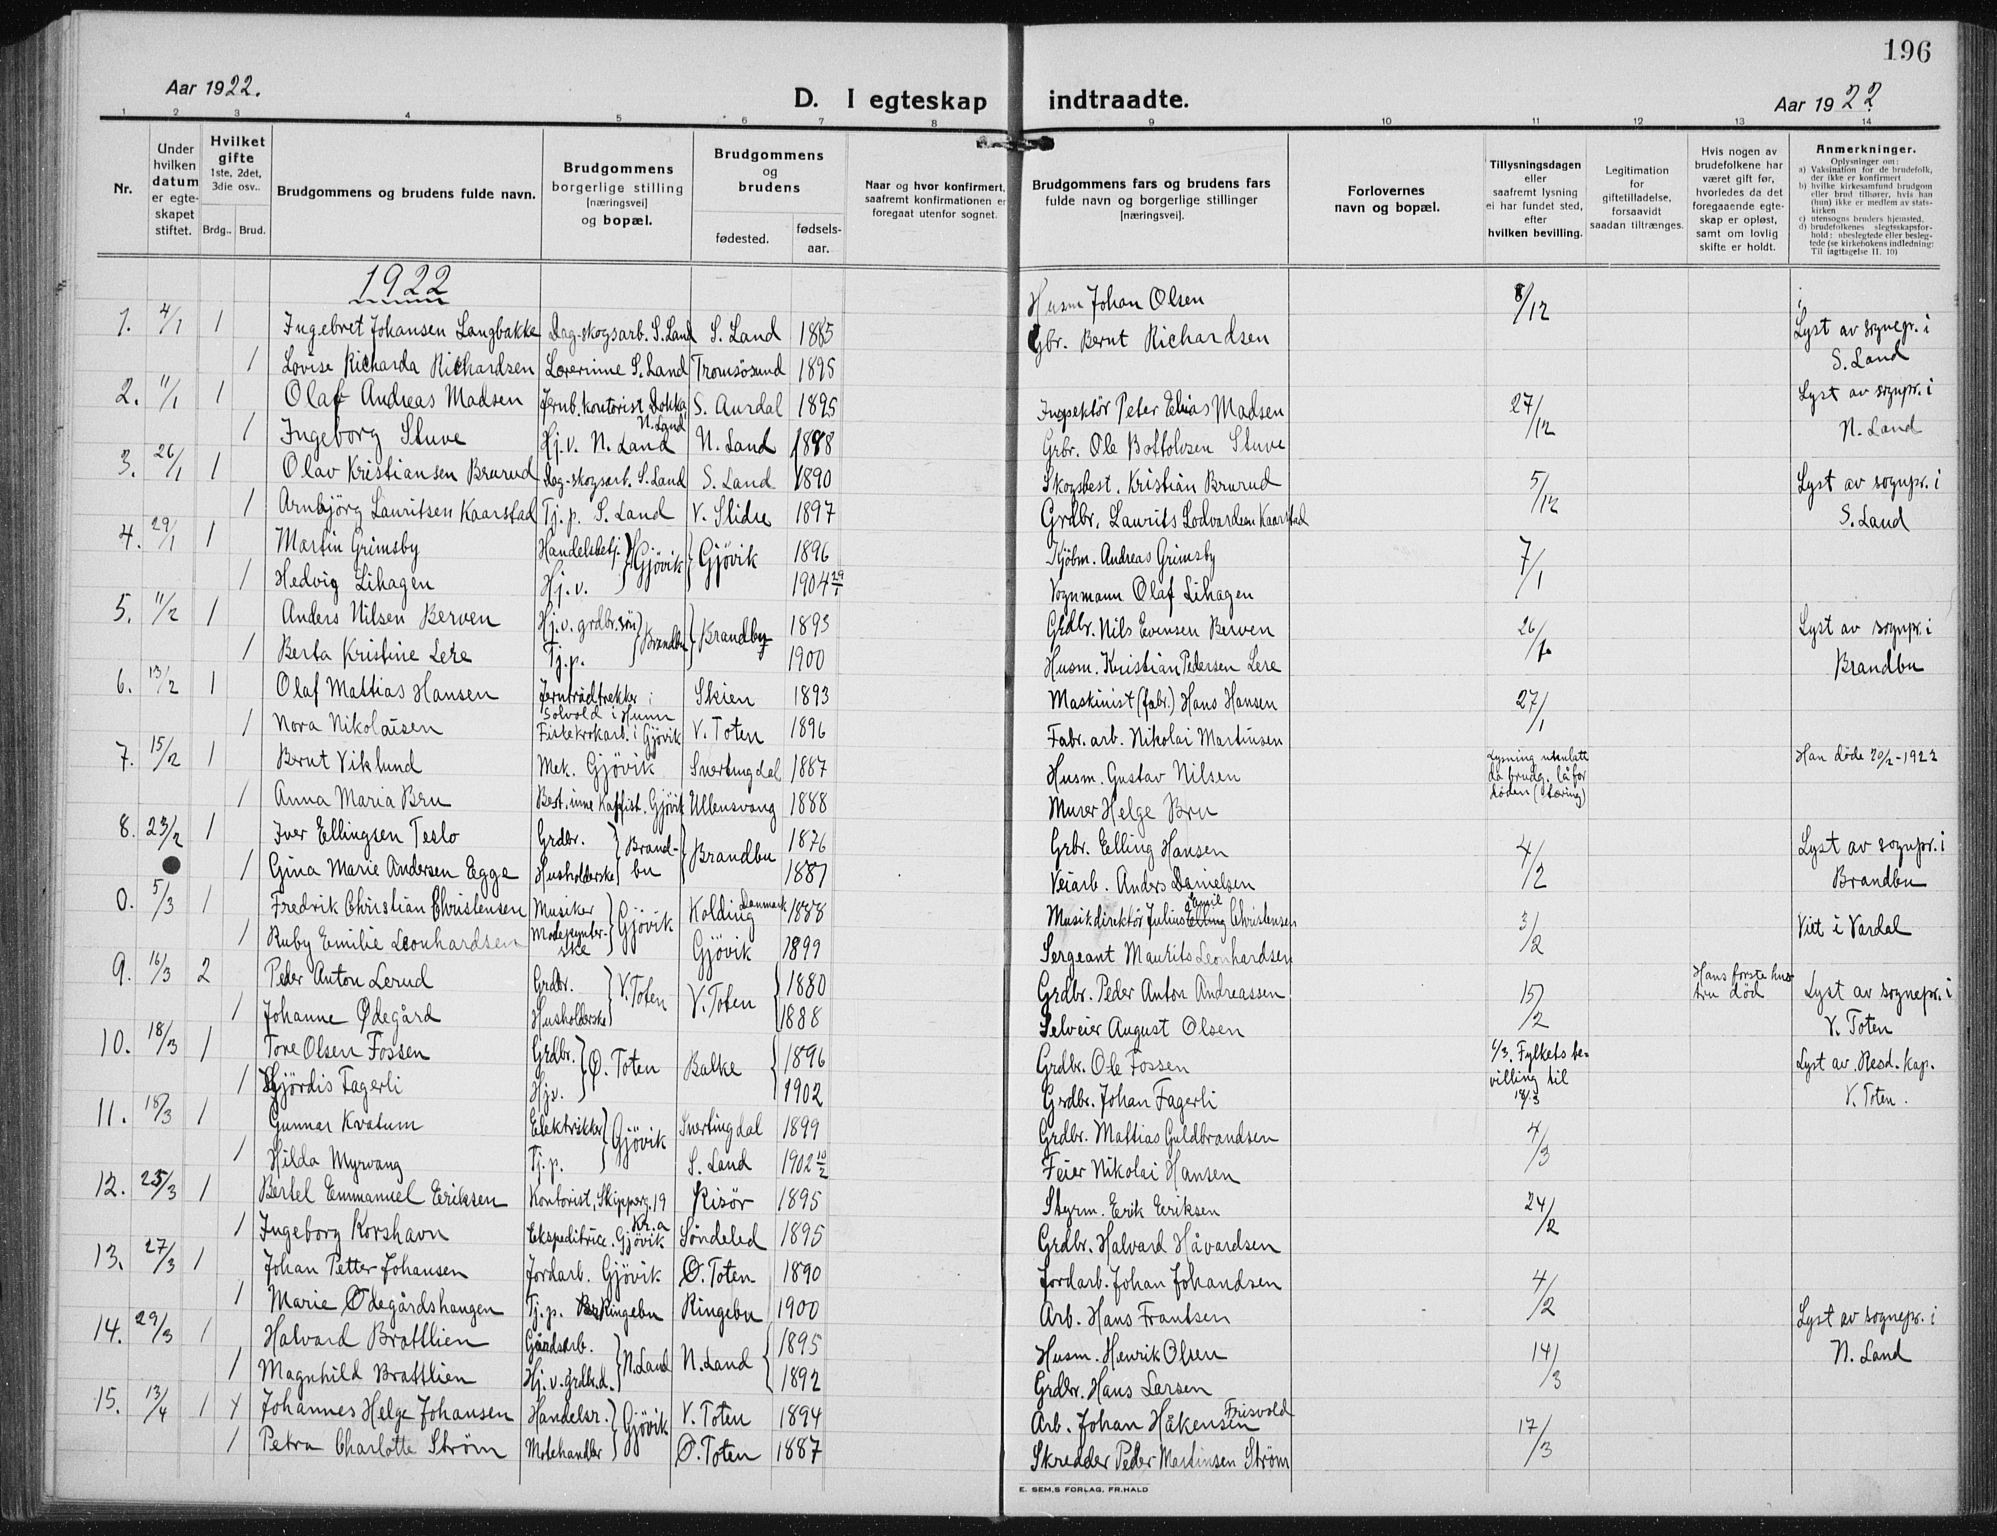 196
Aar 1922.
D. I egteskap indtraadte.
Aar 1922
1 2 3 4 5 6 7 8 9 10 11 12 13 14
Nr.
Under hvilken datum er egteskapet stiftet.
Hvilket gifte 1ste, 2det, 3die osv..
Brdg.. Brud.
Brudgommens og brudens fulde navn.
Brudgommens borgerlige stilling [næringsvei] og bopæl.
Brudgommens og brudens
fødested. fødsels-aar.
Naar og hvor konfirmert, saafremt konfirmationen er foregaat utenfor sognet.
Brudgommens fars og brudens fars fulde navn og borgerlige stillinger [næringsvei].
Forlovernes navn og bopæl.
Tillysningsdagen eller saafremt lysning ei har fundet sted, efter hvilken bevilling.
Legitimation for giftetilladelse, forsaavidt saadan tiltrænges.
Hvis nogen av brudefolkene har været gift før, hvorledes da det foregaaende egteskap er opløst, samt om lovlig skifte er holdt.
Anmerkninger.
Oplysninger om:
a) Vaksination for de brudefolk, der ikke er konfirmert
b) hvilke kirkesamfund brudgom eller brud tilhører, hvis han (hun) ikke er medlem av statskirken
c) utensogns bruders hjemsted.
d) brudefolkenes slegtsskapsforhold: ubeslegtede eller beslegtede (se kirkebokens indledning: Til iagttagelse II. 10)
1922
1. 4/1 1 Ingebret Johansen Langbakke Dag-skogsarb. S. Land S. Land 1885 Husm Johan Olsen 8/12 Lyst av sognepr. i S. Land
1 Lovise Richarda Richardsen Lærerinne S. Land Tromsösund 1895 Gbr. Bernt Richardsen
2. 11/1 1 Olaf Andreas Madsen Jernb. kontorist Dokka N. Land S. Aurdal 1895 Inspektör Peter Elias Madsen 27/12 Lyst av sognpr. i N. Land
1 Ingeborg Stuve Hj. v. N. Land N. Land 1898 Grbr. Ole Bottolvsen Stuve
3. 26/1 1 Olav Kristiansen Brurud Dag-skogsarb. S. Land S. Land 1890 Skogsbest. Kristian Brurud 5/12 Lyst av sognpr. i S. Land
1 Arnbjörg Lauritsen Kaarstad Tj. p. S. Land V. Slidre 1897 Grdbr. Laurits Lodvardsen Kaarstad
4. 29/1 1 Martin Grimsby Handelsbetj. Gjövik Gjövik 1896 Kjöbm. Andreas Grimsby 7/1
1 Hedvig Lihagen Hj. v. 1904 29/1 Vognmann Olaf Lihagen
5. 11/2 1 Anders Nilsen Berven Hj. v. grdbr. sön Brandbu Brandby 1893 Grdbr. Nils Evensen Berven 26/1 Lyst av sognpr. i Brandbu
1 Berta Kristine Lere Tj. p. 1900 Husm. Kristian Pedersen Lere
6. 13/2 1 Olaf Mattias Hansen Jerntrådtrekker i Solvold i Hunn Skien 1893 Maskinist (fabr.) Hans Hansen 27/1
1 Nora Nikolaisen Fiskekrokarb. i Gjövik V. Toten 1896 Fabr. arb. Nikolai Martinsen
7. 15/2 1 Bernt Viklund Mek. Gjövik Snertingdal 1887 Husm. Gustav Nilsen Lysning utenlatt da brudg. lå for döden (tæring) Han döde 20/2-1922
1 Anna Maria Bru Best. inne Kaffist. Gjövik Ullensvang 1888 Murer Helge Bru
8. 23/2 1 Iver Ellingsen Teslo Grdbr. Brandbu Brandbu 1876 Grbr. Elling Hansen 4/2 Lyst av sognpr. i Brandbu
1 Gina Marie Andersen Egge Husholderske 1887 Veiarb. Anders Danielsen
0. 5/3 1 Fredrik Christian Christensen Musiker Gjövik Kolding Danmark 1888 Musikdirektör Julius Emil Christensen 3/2 Viet i Vardal
1 Ruby Emilie Leonhardsen Modepynterske Gjövik 1899 Sergeant Maurits Leonhardsen
9. 16/3 2 Peder Anton Lerud Grdbr. V. Toten V. Toten 1880 Grdbr. Peder Anton Andreassen 15/2 Hans förste hustru död Lyst av sognepr. i V. Toten
1 Johanne Ødegård Husholderske 1888 Selveier August Olsen
10. 18/3 1 Tore Olsen Fossen Grdbr. Ø. Toten Balke 1896 Grdbr. Ole Fossen 1/3. Fylkets bevilling til 18/3 Lyst av Resd. Kap. V. Toten.
1 Hjördis Fagerli Hjv. 1902 Grdbr. Johan Fagerli
11. 18/3 1 Gunnar Kvatum Elektrikker Gjövik Snertingdal 1899 Grdbr. Mattias Guldbrandsen 4/3
1 Hilda Myrvang Tj. p. S. Land 1902 10/2 Feier Nikolai Hansen
12. 25/3 1 Bertel Emmanuel Eriksen Kontorist, Skipperg. 19 Kr.a Risör 1895 Styrm. Erik Eriksen 24/2
1 Ingeborg Korshavn Ekspeditrice. Gjövik Söndeled 1895 Grdbr. Halvard Håvardsen
13. 27/3 1 Johan Petter Johansen Jordarb. Gjövik Ø. Toten 1890 Jordarb. Johan Johandsen 4/2
1 Marie Ødegårdshaugen Tj. p. Ringebu Ringebu 1900 Arb. Hans Frantsen
14. 29/3 1 Halvard Brattlien Gårdsarb. N. Land N. Land 1895 Husm. Henrik Olsen 14/3 Lyst av sognepr. i N. Land
1 Magnhild Brattlien Hj. v. grdb. d. 1892 Grdbr. Hans Larsen
15. 13/4 1 Johannes Helge Johansen Handelsr. Gjövik V. Toten 1894 Arb. Johan Håkensen Frisvold 17/3
1 Petra Charlotte Ström Motehandler Ø. Toten 1887 Skredder Peder Martinsen Ström
E. SEM,S FORLAG, FR.HALD